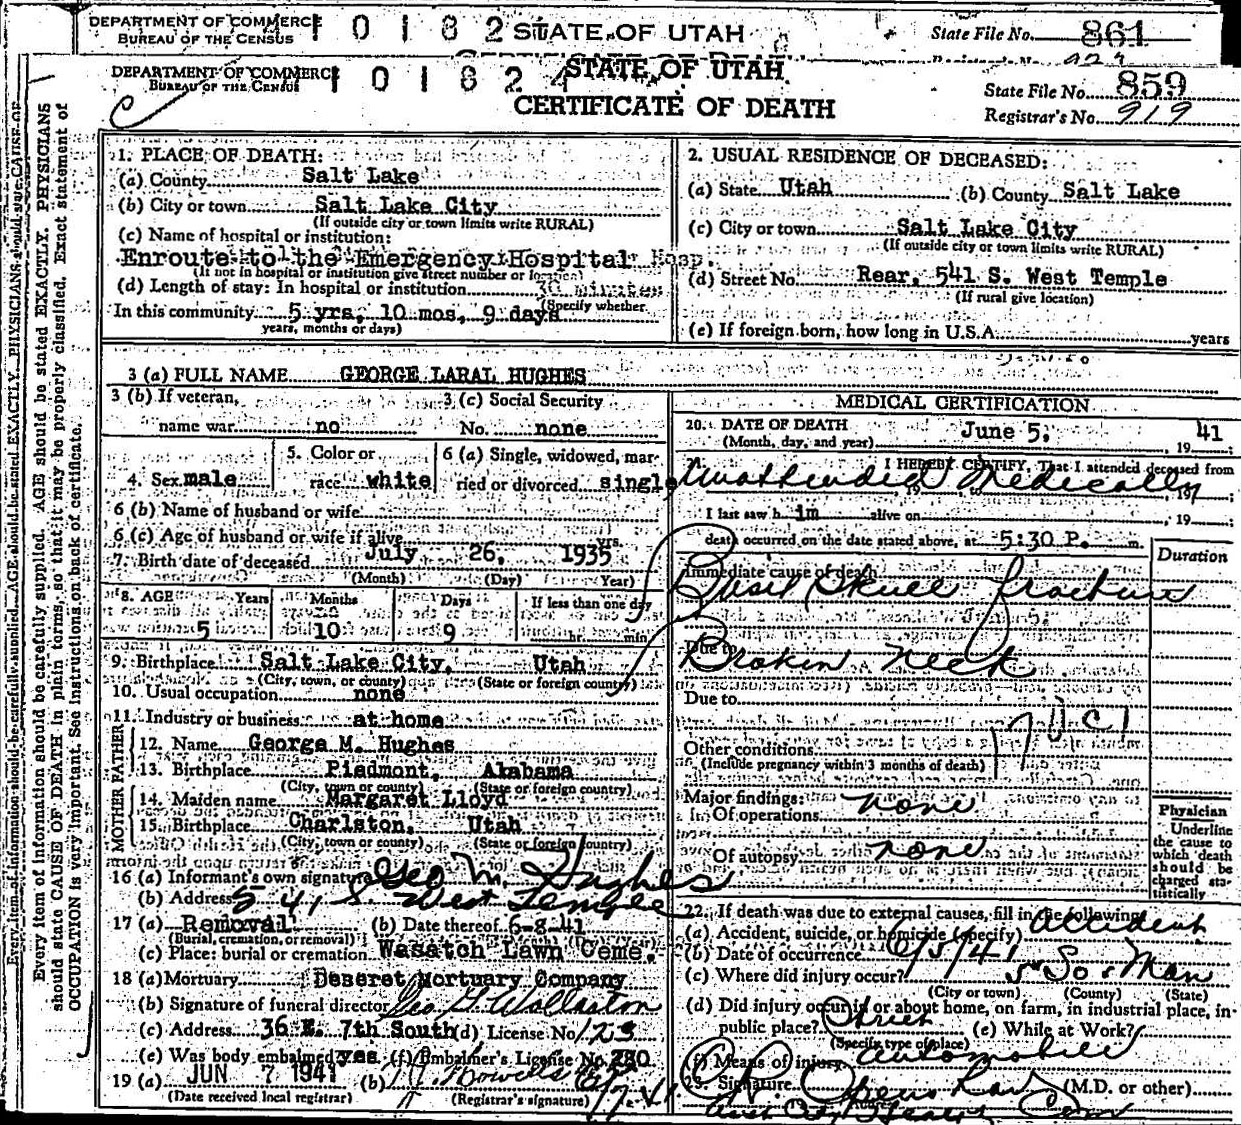 DEPARTMENT OF COMMERCE
BUREAU OF THE CENSUS
1 0 1 8 2
STATE OF UTAH
State File No. 861
DEPARTMENT OF COMMERCE
BUREAU OF THE CENSUS
1 0 1 8 2 4
STATE OF UTAH
CERTIFICATE OF DEATH
State File No. 859
Registrar's No. 919
Every item of information should be carefully supplied. AGE should be stated EXACTLY. PHYSICIANS
should state CAUSE OF DEATH in plain terms, so that it may be properly classified. Exact statement of
OCCUPATION is very important. See instructions on back of certificate.
1. PLACE OF DEATH:
(a) County Salt Lake
(b) City or town Salt Lake City
(If outside city or town limits write RURAL)
(c) Name of hospital or institution:
Enroute to the Emergency Hospital Hosp.
(If not in hospital or institution give street number or location)
(d) Length of stay: In hospital or institution 30 minutes
(Specify whether
In this community 5 yrs, 10 mos, 9 days
years, months or days)
2. USUAL RESIDENCE OF DECEASED:
(a) State Utah (b) County Salt Lake
(c) City or town Salt Lake City
(If outside city or town limits write RURAL)
(d) Street No. Rear, 541 S. West Temple
(If rural give location)
(e) If foreign born, how long in U.S.A. years
3 (a) FULL NAME GEORGE LARAL HUGHES
3 (b) If veteran,
name war no
3 (c) Social Security
No. none
4. Sex male
5. Color or
race white
6 (a) Single, widowed, mar-
ried or divorced single
6 (b) Name of husband or wife
6 (c) Age of husband or wife if alive yrs.
7. Birth date of deceased July 26, 1935
(Month) (Day) (Year)
8. AGE Years Months Days If less than one day
5 10 9 hr. min.
9. Birthplace Salt Lake City, Utah
(City, town, or county) (State or foreign country)
10. Usual occupation none
11. Industry or business at home
FATHER
12. Name George M. Hughes
13. Birthplace Piedmont, Alabama
(City, town or county) (State or foreign country)
MOTHER
14. Maiden name Margaret Lloyd
15. Birthplace Charlston, Utah
(City, town or county) (State or foreign country)
16 (a) Informant's own signature Geo M. Hughes
(b) Address 541 S. West Temple
17 (a) Removal (b) Date thereof 6-8-41
(Burial, cremation, or removal)
(c) Place: burial or cremation Wasatch Lawn Ceme.
18 (a) Mortuary Deseret Mortuary Company
(b) Signature of funeral director Geo G Wollaston
(c) Address 36 E. 7th South (d) License No. 123
(e) Was body embalmed yes (f) Embalmer's License No. 280
19 (a) JUN 7 1941 (b)
(Date received local registrar) (Registrar's signature)
MEDICAL CERTIFICATION
20. DATE OF DEATH
(Month, day, and year) June 5, 19 41
I HEREBY CERTIFY, That I attended deceased from
Unattended Medically
I last saw him alive on , 19
death occurred on the date stated above, at 5:30 P. m.
Duration
Immediate cause of death
Basil Skull fracture
Due to
Broken Neck
Due to
Other conditions
(Include pregnancy within 3 months of death)
Major findings:
Of operations none
Of autopsy none
Physician
Underline
the cause to
which death
should be
charged sta-
tistically
22. If death was due to external causes, fill in the following:
(a) Accident, suicide, or homicide (specify) Accident
(b) Date of occurrence 6/5/41
(c) Where did injury occur? 5th So & Main
(City or town) (County) (State)
(d) Did injury occur in or about home, on farm, in industrial place, in
public place? Street (e) While at Work?
(Specify type of place)
(f) Means of injury automobile
23. Signature (M.D. or other)